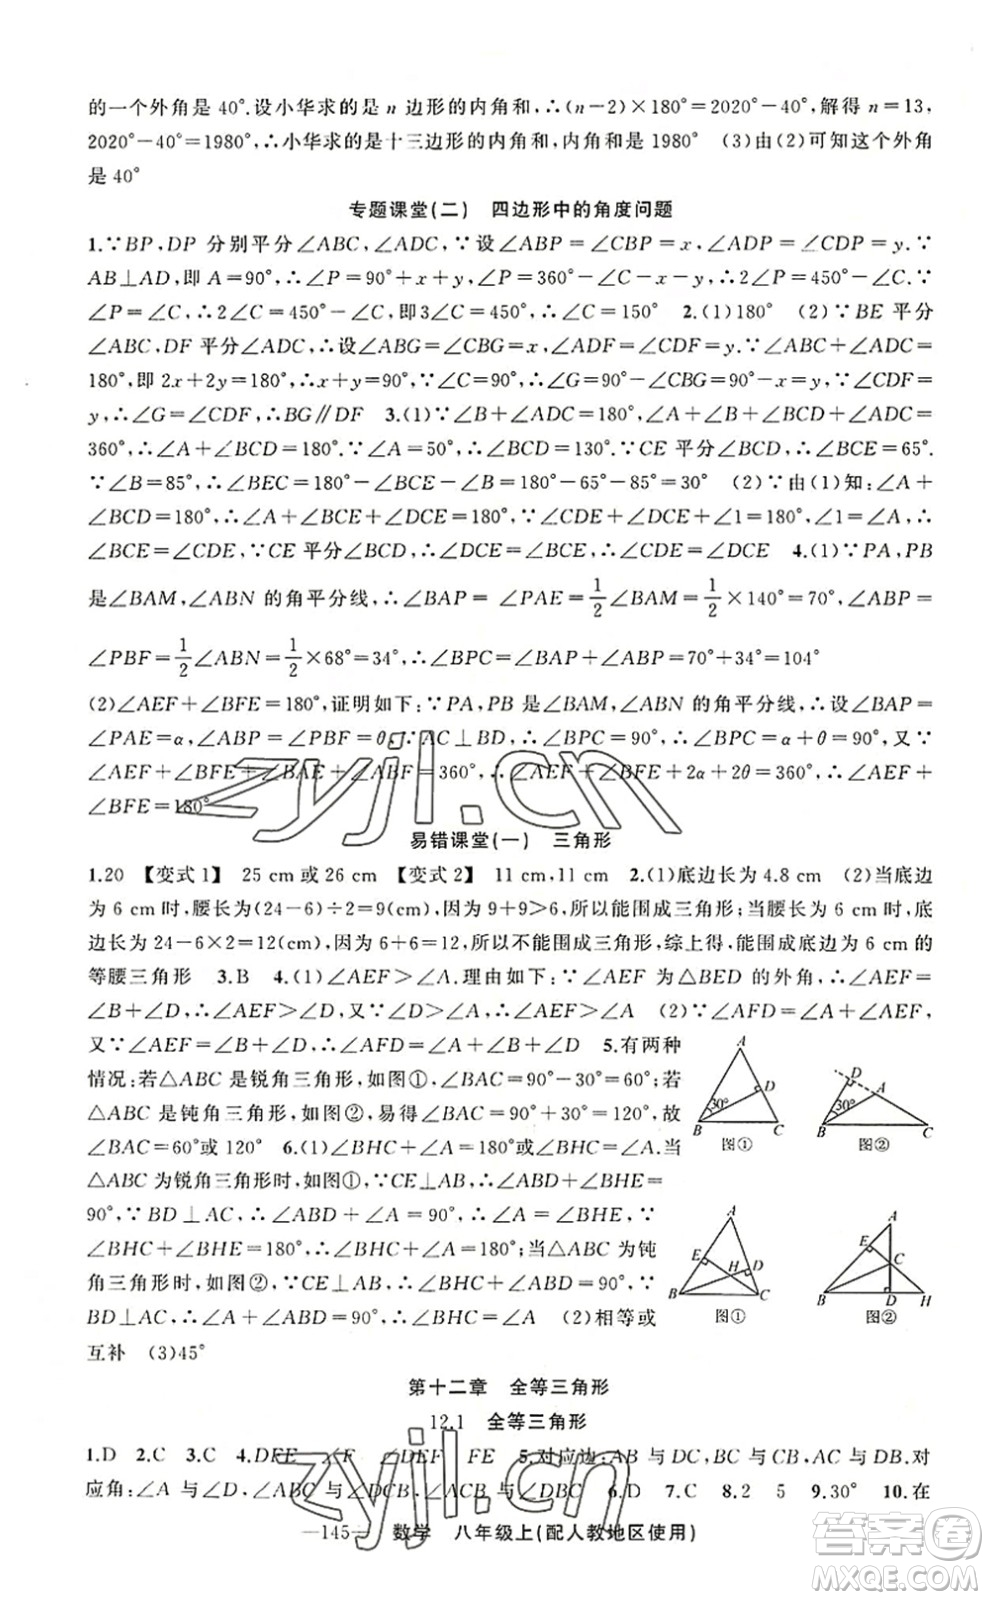 的一个外角是 40°.设小华求的是 n 边形的内角和,∴(n－2)×180°=2020°－40°,解得 n=13,
2020°－40°=1980°,∴小华求的是十三边形的内角和,内角和是 1980° (3)由(2)可知这个外角
是 40°
专题课堂(二) 四边形中的角度问题
1.∵BP,DP 分别平分∠ABC,∠ADC,∵设∠ABP=∠CBP=x,∠ADP=∠CDP=y.∵
AB⊥AD,即 A=90°,∴∠P=90°+x+y,∠P=360°－∠C－x－y,∴2∠P=450°－∠C.∵
∠P=∠C,∴2∠C=450°－∠C,即3∠C=450°,∴∠C=150° 2.(1)180° (2)∵BE 平分
∠ABC,DF 平分∠ADC,∴设∠ABG=∠CBG=x,∠ADF=∠CDF=y,∵∠ABC+∠ADC=
180°,即 2x+2y=180°,∴x+y=90°,∵∠C=90°,∴∠G=90°－∠CBG=90°－x,∵∠CDF=
y,∴∠G=∠CDF,∴BG∥DF 3.(1)∵∠B+∠ADC=180°,∠A+∠B+∠BCD+∠ADC=
360°,∴∠A+∠BCD=180°.∵∠A=50°,∴∠BCD=130°.∵CE 平分∠BCD,∴∠BCE=65°.
∵∠B=85°,∴∠BEC=180°－∠BCE－∠B=180°－65°－85°=30° (2)∵由(1)知:∠A+
∠BCD=180°,∴∠A+∠BCE+∠DCE=180°,∵∠CDE+∠DCE+∠1=180°,∠1=∠A,∴
∠BCE=∠CDE,∵CE 平分∠BCD,∴∠DCE=∠BCE,∴∠CDE=∠DCE 4.(1)∵PA,PB
是∠BAM,∠ABN 的角平分线,∴∠BAP=∠PAE=1/2∠BAM=1/2×140°=70°,∠ABP=
∠PBF=1/2∠ABN=1/2×68°=34°,∴∠BPC=∠BAP+∠ABP=70°+34°=104°
(2)∠AEF+∠BFE=180°,证明如下:∵PA,PB 是∠BAM,∠ABN的角平分线,∴设∠BAP=
∠PAE=α,∠ABP=∠PBF=θ,∵AC⊥BD,∴∠BPC=90°,∴∠BPC=α+θ=90°,又∵
∠AEF+∠BFE+∠BAE+∠ABF=360°,∴∠AEF+∠BFE+2α+2θ=360°,∴∠AEF+
∠BFE=180°
易错课堂(一) 三角形
1.20 【变式1】 25 cm或26 cm 【变式2】 11 cm,11 cm 2.(1)底边长为4.8 cm (2)当底边
为 6 cm时,腰长为(24－6)÷2=9(cm),因为 9+9>6,所以能围成三角形;当腰长为 6 cm时,底
边长为 24－6×2=12(cm),因为 6+6=12,所以不能围成三角形,综上得,能围成底边为 6 cm的
等腰三角形 3.B 4.(1)∠AEF>∠A.理由如下:∵∠AEF 为△BED 的外角,∴∠AEF=
∠B+∠D,∴∠AEF>∠D,又∵∠D>∠A,∴∠AEF>∠A (2)∵∠AFD=∠A+∠AEF,
又∵∠AEF=∠B+∠D,∴∠AFD=∠A+∠B+∠D 5.有两种
情况:若△ABC 是锐角三角形,如图①,∠BAC=90°－30°=60°;若
△ABC 是钝角三角形,如图②,易得∠BAC=90°+30°=120°,故
∠BAC=60°或 120° 6.(1)∠BHC+∠A=180°或∠BHC=∠A.当
△ABC 为锐角三角形时,如图①,∵CE⊥AB,∴∠ABD+∠BHE=
90°,∵BD⊥AC,∴∠ABD+∠A=90°,∴∠A=∠BHE,∵
∠BHC+∠BHE=180°,∴∠BHC+∠A=180°;当△ABC 为钝
角三角形时,如图②,∵CE⊥AB,∴∠BHC+∠ABD=90°,∵
BD⊥AC,∴∠A+∠ABD=90°,∴∠BHC=∠A (2)相等或
互补 (3)45°
A D 30° B C 图①
D A 30° B C 图②
A E H D B C 图①
A E C B D H 图②
第十二章 全等三角形
12.1 全等三角形
1.D 2.C 3.C 4.DFE ∠F ∠DEF FE 5.对应边:AB 与 DC,BC 与 CB,AC 与 DB.对
应角:∠A 与∠D,∠ABC 与∠DCB,∠ACB 与∠DBC 6.D 7.C 8.2 5 9.30° 10.在
—145— 数学 八年级上(配人教地区使用)
zyjl.cn
zyjl.cn
作业精灵
MXQE.COM